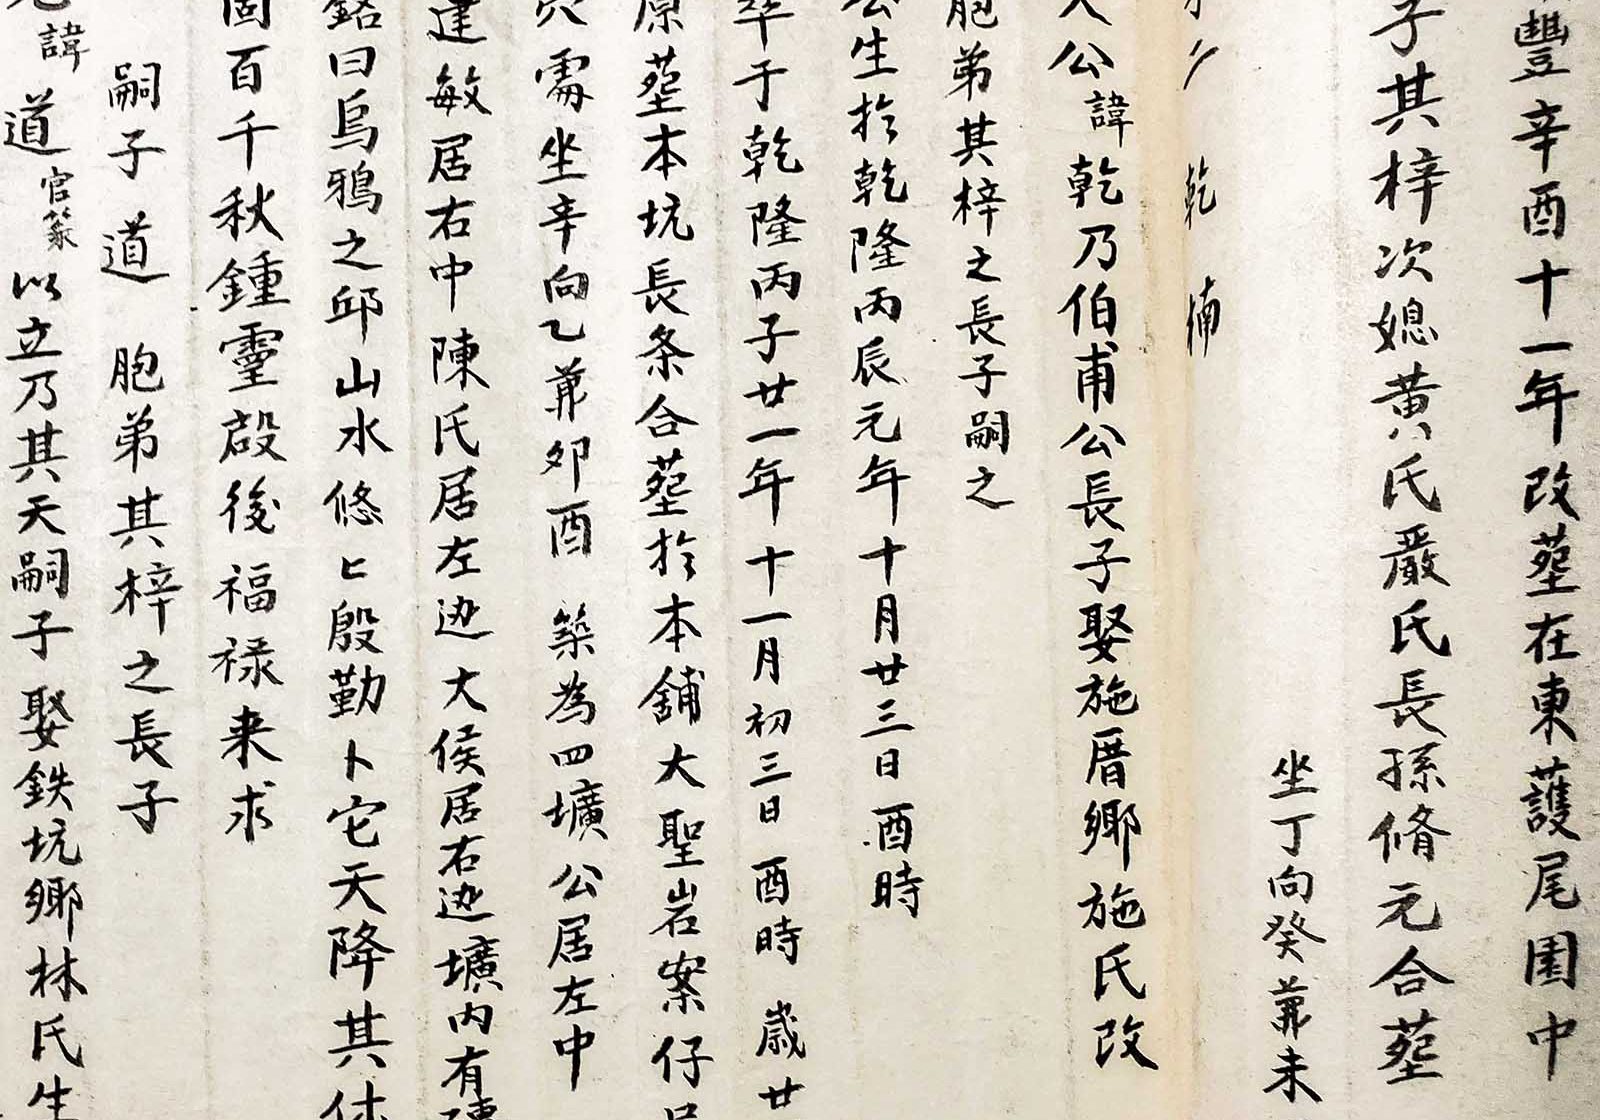 豐辛酉十一年改塟在東護尾園中
子其梓次媳黄氏嚴氏長孫脩元合塟
坐丁向癸兼未
乾 楠
公諱乾乃伯甫公長子娶施厝鄉施氏改
胞弟其梓之長子嗣之
公生扵乾隆丙辰元年十月廿三日酉時
卒于乾隆丙子廿一年十一月初三日酉時 歲廿
原塟本坑長条合塟扵本舖大聖岩案仔
穴需坐辛向乙兼卯酉 築為四壙公居左中
建敏居右中陳氏居左边大侯居右边壙内有
銘曰烏鴉之邱山水悠〻殷勤卜它天降其休
固百千秋鍾靈啟後福禄来求
嗣子道 胞弟其梓之長子
諱道官篆以立乃其天嗣子娶鉄坑鄉林氏生